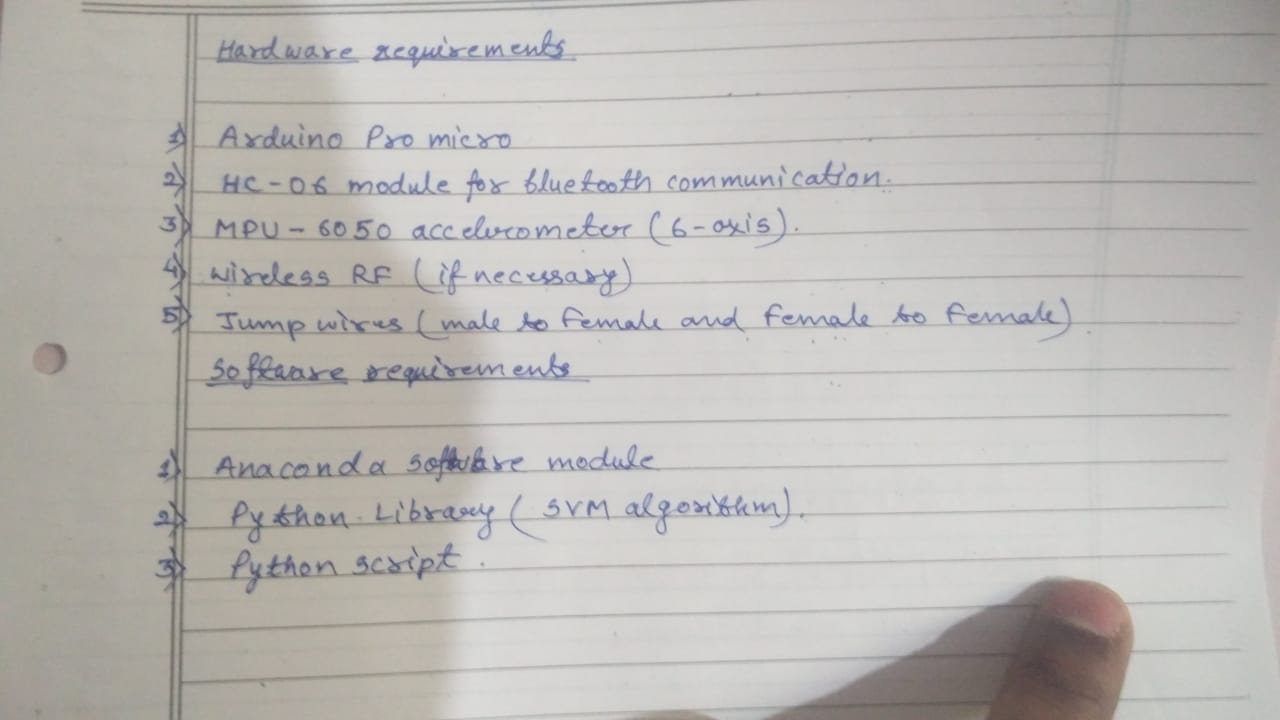 Hardware requirements
1) Arduino Pro micro
2) HC-06 module for bluetooth communication.
3) MPU-6050 accelerometer (6-axis).
4) wireless RF (if necessary)
5) Jump wires (male to female and female to female)
Software requirements
1) Anaconda software module
2) Python Library (SVM algorithm).
3) Python script.